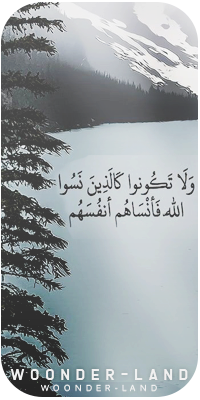 وَلَا تَكُونوا كَالَّذِينَ نَسُوا
الله فَأَنْسَاهُم أَنفُسَهُم
WOONDER-LAND
WOONDER-LAND